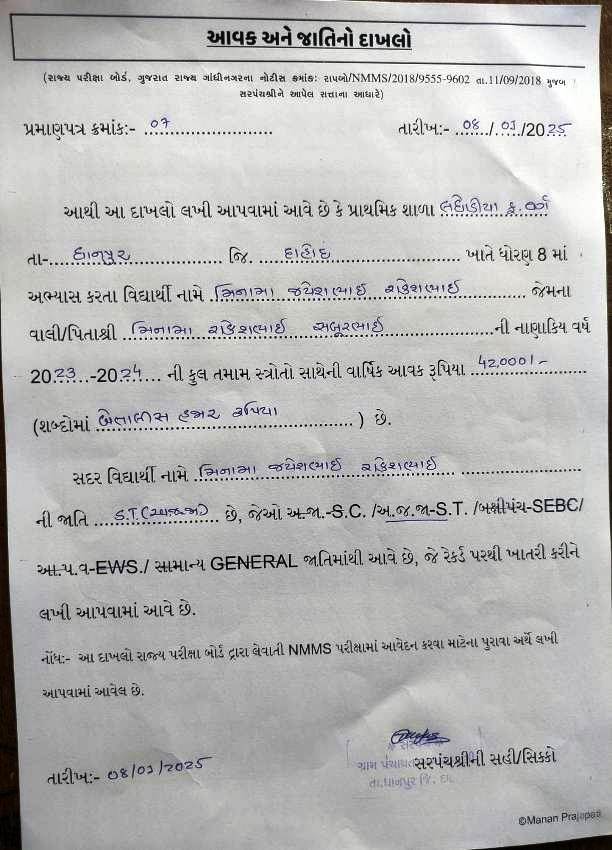 આવક અને જાતિનો દાખલો
(રાજ્ય પરીક્ષા બોર્ડ, ગુજરાત રાજ્ય ગાંધીનગરના નોટીસ ક્રમાંક: રાપબો/NMMS/2018/9555-9602 તા.11/09/2018 મુજબ
સરપંચશ્રીને આપેલ સત્તાના આધારે)
પ્રમાણપત્ર ક્રમાંક:- ..૦૭........................ તારીખ:- ..૦૪../..૦૩../2025
આથી આ દાખલો લખી આપવામાં આવે છે કે પ્રાથમિક શાળા
તા-....ધાનપુર........................ જિ. ...દાહોદ................................ ખાતે ધોરણ 8 માં
અભ્યાસ કરતા વિદ્યાર્થી નામે ..મિનામા જયેશભાઈ રાકેશભાઈ............ જેમના
વાલી/પિતાશ્રી ..મિનામા રાકેશભાઈ સબુરભાઈ....................ની નાણાકિય વર્ષ
2023...-2024.... ની કુલ તમામ સ્ત્રોતો સાથેની વાર્ષિક આવક રૂપિયા 42,000/-
(શબ્દોમાં બેતાલીસ હજાર રૂપિયા................) છે.
સદર વિદ્યાર્થી નામે ...મિનામા જયેશભાઈ રાકેશભાઈ........................
ની જાતિ ....S.T.(અ.જ.જા)... છે, જેઓ અ.જા.-S.C. /અ.જ.જા-S.T. /બક્ષીપંચ-SEBC/
આ.પ.વ-EWS./ સામાન્ય GENERAL જાતિમાંથી આવે છે, જે રેકર્ડ પરથી ખાતરી કરીને
લખી આપવામાં આવે છે.
નોંધ:- આ દાખલો રાજ્ય પરીક્ષા બોર્ડ દ્વારા લેવાતી NMMS પરીક્ષામાં આવેદન કરવા માટેના પુરાવા અર્થે લખી
આપવામાં આવેલ છે.
સરપંચ
ગ્રામ પંચાયત
તારીખ:- ૦૪/૦૩/૨૦૨૫ સરપંચશ્રીની સહી/સિક્કો
તા.ધાનપુર જિ. દા.
©Manan Prajapati